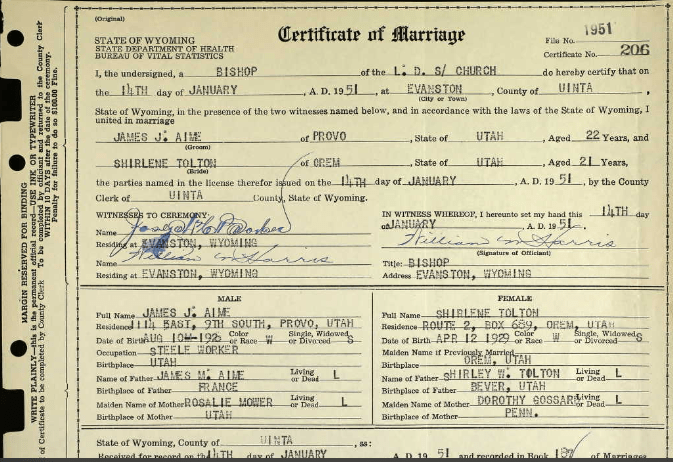 (Original)
Certificate of Marriage
STATE OF WYOMING
STATE DEPARTMENT OF HEALTH
BUREAU OF VITAL STATISTICS
File No. 1951
Certificate No. 206
I, the undersigned, a BISHOP of the L. D. S/ CHURCH do hereby certify that on
the 14TH day of JANUARY, A. D. 1951, at EVANSTON, County of UINTA,
(City or Town)
State of Wyoming, in the presence of the two witnesses named below, and in accordance with the laws of the State of Wyoming, I
united in marriage
JAMES J. AIME of PROVO, State of UTAH, Aged 22 Years, and
(Groom)
SHIRLENE TOLTON of OREM, State of UTAH, Aged 21 Years,
(Bride)
the parties named in the license therefor issued on the 14TH day of JANUARY, A. D. 1951, by the County
Clerk of UINTA County, State of Wyoming.
WITNESSES TO CEREMONY:
Name
Residing at EVANSTON, WYOMING
Name William M Harris
Residing at EVANSTON, WYOMING
IN WITNESS WHEREOF, I hereunto set my hand this 14TH day
of JANUARY, A. D. 1951.
William M Harris
(Signature of Official)
Title: BISHOP
Address EVANSTON, WYOMING
MALE
Full Name JAMES J. AIME
Residence 114 EAST, 9TH SOUTH, PROVO, UTAH
Date of Birth AUG Color or Race W Single, Widowed or Divorced S
Occupation STEELE WORKER
Birthplace UTAH
Name of Father JAMES M. AIME Living or Dead L
Birthplace of Father FRANCE
Maiden Name of Mother ROSALIE MOWER Living or Dead L
Birthplace of Mother UTAH
FEMALE
Full Name SHIRLENE TOLTON
Residence ROUTE 2, BOX 689, OREM, UTAH
Date of Birth APR 12 1929 Color or Race W Single, Widowed or Divorced S
Maiden Name if Previously Married
Birthplace OREM, UTAH
Name of Father SHIRLEY W. TOLTON Living or Dead L
Birthplace of Father BEVER, UTAH
Maiden Name of Mother DOROTHY GOSSARD Living or Dead L
Birthplace of Mother PENN.
State of Wyoming, County of UINTA, ss:
Received for record on the 14TH day of JANUARY A. D. 1951 and recorded in Book of Marriages
MARGIN RESERVED FOR BINDING
WRITE PLAINLY—this is the permanent official record—USE INK OR TYPEWRITER
To be completed by officiant and returned to the County Clerk
WITHIN 10 DAYS after the date of the ceremony.
Penalty for failure to do so $100.00 Fine.
of Certificate to be completed by County Clerk